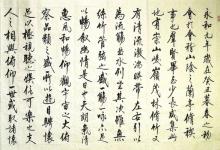 永和九年歲在癸丑暮春之初
會于會稽山陰之蘭亭脩稧
事也群賢畢至少長咸集此
地有崇山峻領茂林脩竹又
有清流激湍暎帶左右引以
為流觴曲水列坐其次雖無
絲竹管弦之盛一觴一詠亦足
以暢敘幽情是日也天朗氣清
惠風和暢仰觀宇宙之大俯
察品類之盛所以遊目騁懷
足以極視聽之娛信可樂也夫
人之相與俯仰一世或取諸懷